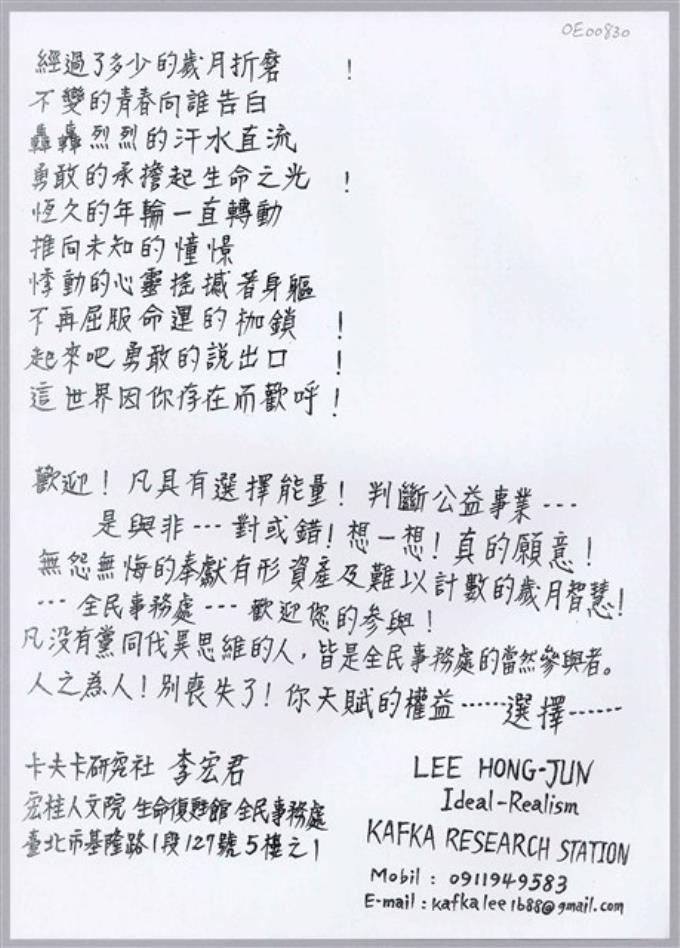 OE00830
經過了多少的歲月折磨 !
不變的青春向誰告白
轟轟烈烈的汗水直流
勇敢的承擔起生命之光 !
恆久的年輪一直轉動
推向未知的憧憬
悸動的心靈搖撼著身軀
不再屈服命運的枷鎖 !
起來吧勇敢的說出口 !
這世界因你存在而歡呼!
歡迎! 凡具有選擇能量! 判斷公益事業---
是與非---對或錯!想一想!真的願意!
無怨無悔的奉獻有形資產及難以計數的歲月智慧!
---全民事務處---歡迎您的參與!
凡没有黨同伐異思維的人,皆是全民事務處的當然參與者。
人之為人!別喪失了!你天賦的權益……選擇------
卡夫卡研究社 李宏君
宏桂人文院 生命復甦館 全民事務處
臺北市基隆路1段127號5樓之1
LEE HONG-JUN
Ideal-Realism
KAFKA RESEARCH STATION
Mobil : 0911949583
E-mail : kafkalee1688@gmail.com